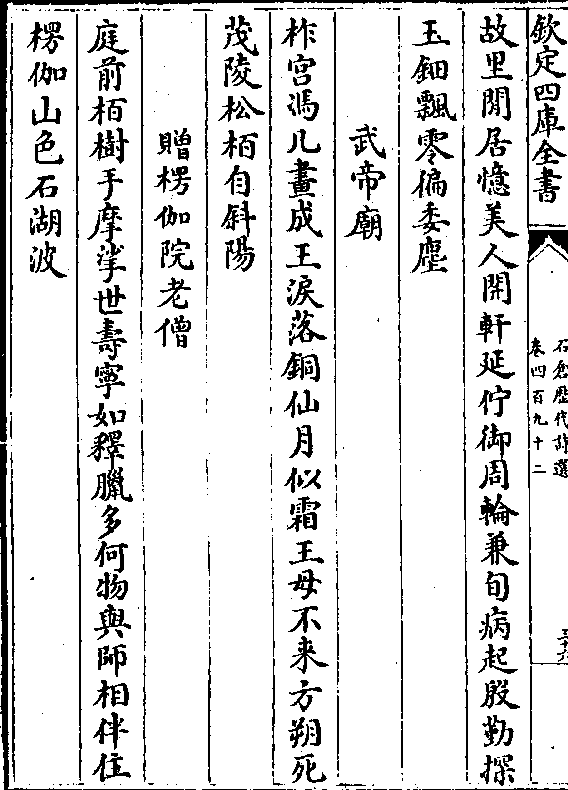 欽定四庫全書
石倉歷代詩選
卷四百九十二
故里閒居憶美人開軒延佇御周輪兼旬病起殷勤探
玉鈿飄零偏委塵
武帝廟
柞宮馮几畫成王淚落銅仙月似霜王母不来方朔死
茂陵松栢自斜陽
贈楞伽院老僧
庭前栢樹手摩挲世壽寧如釋臘多何物與師相伴住
楞伽山色石湖波